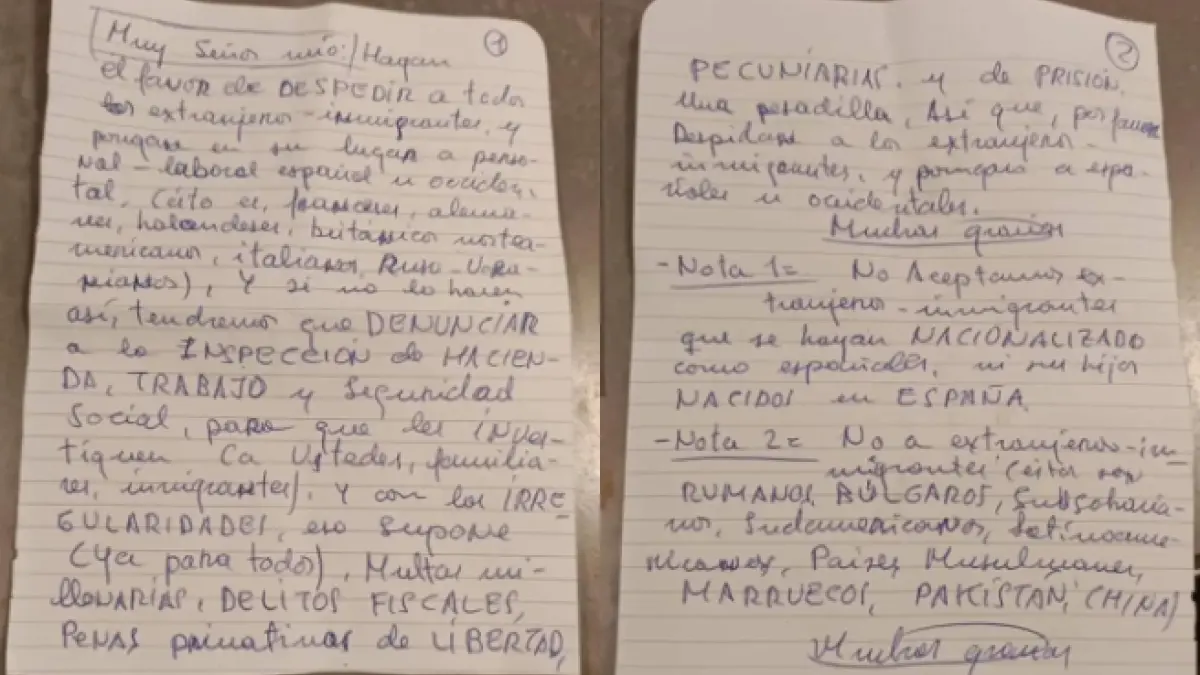 1
Muy Señor mío:/Hagan
el favor de DESPEDIR a todos
los extranjeros-inmigrantes, y
pongan en su lugar a perso-
nal-laboral español u occiden-
tal. (Esto es, franceses, alema-
nes, holandeses, británicos nortea-
mericanos, italianos, Ruso-Ucra-
nianos), Y si no lo hacen
así, tendremos que DENUNCIAR
a la INSPECCIÓN de HACIEN-
DA, TRABAJO y Seguridad
Social, para que les inves-
tiguen (a Ustedes, familia-
res, inmigrantes). Y con las IRRE-
GULARIDADES, eso supone
(Ya para todos), Multas mi-
llONARIAS, DELITOS FISCALES,
PENAS privativas de LIBERTAD,
2
PECUNIARIAS. y de PRISIÓN.
Una pesadilla, Así que, por favor
Despidan a los extranjeros-
inmigrantes, y pongan a espa-
ñoles u occidentales.
Muchas gracias
-Nota 1= No Aceptamos ex-
tranjeros-inmigrantes
que se hayan NACIONALIZADO
como españoles, ni sus hijos
NACIDOS en ESPAÑA.
-Nota 2= No a extranjeros-in-
migrantes (estos son
RUMANOS, BÚLGAROS, Subsaharia-
nos, Sudamericanos, Latinoame-
ricanos, Países Musulmanes,
MARRUECOS, PAKISTÁN, CHINA)
Muchas gracias